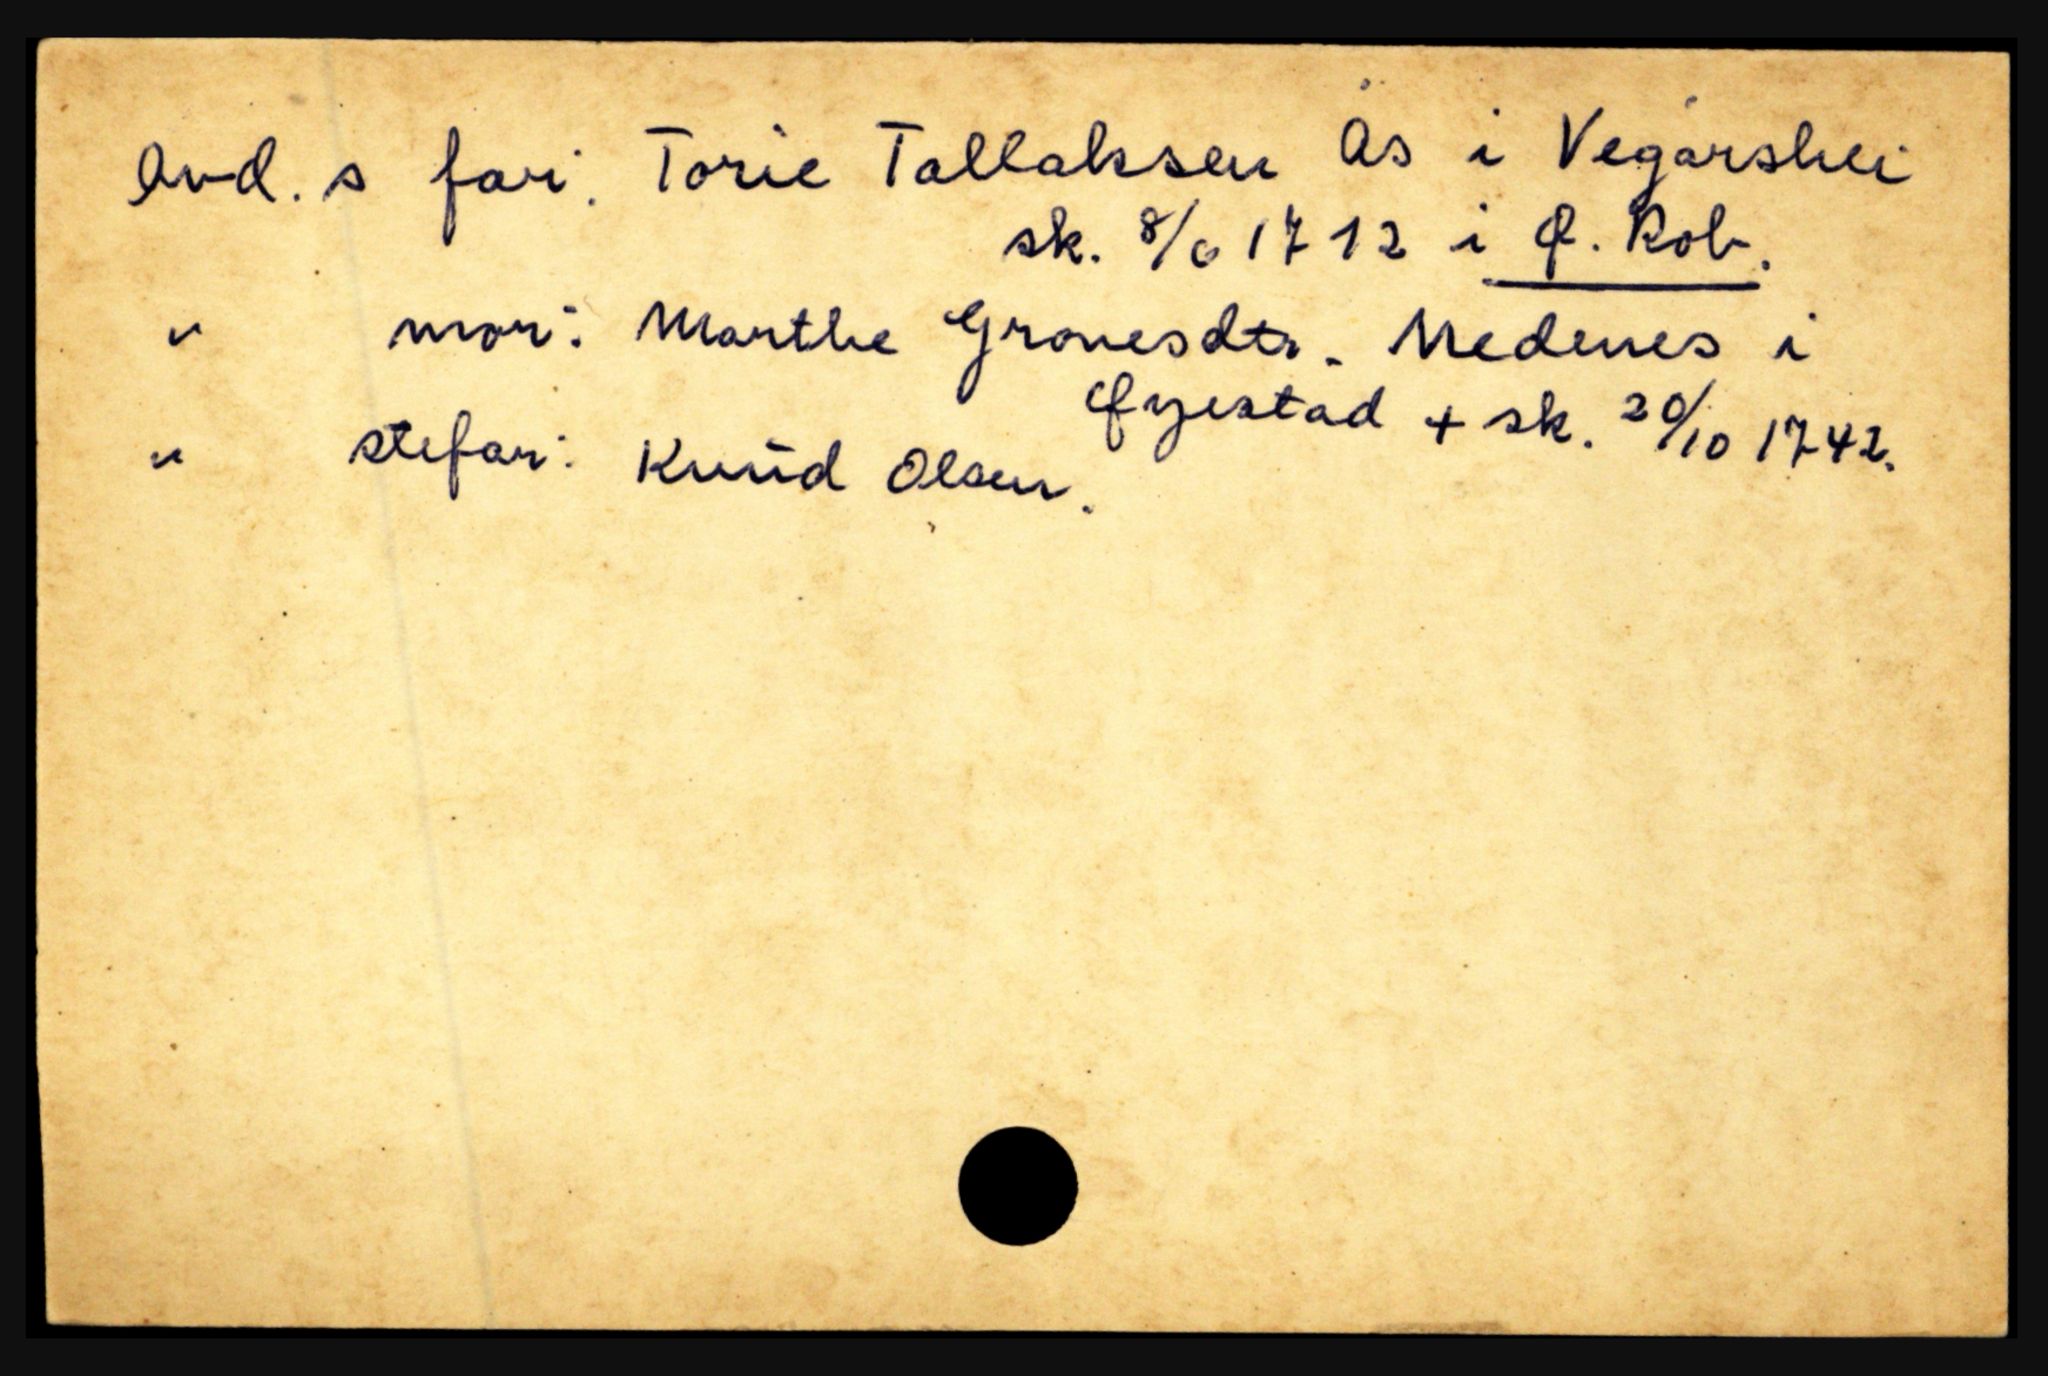 Avd. s far: Torie Tallaksen Ås i Vegårshei
sk. 8/6 1712 i Ø. Rob.
" mor: Marthe Gronesdtr. Nedenes i
Øyestad + sk. 20/10 1742.
" stefar: Knud Olsen.